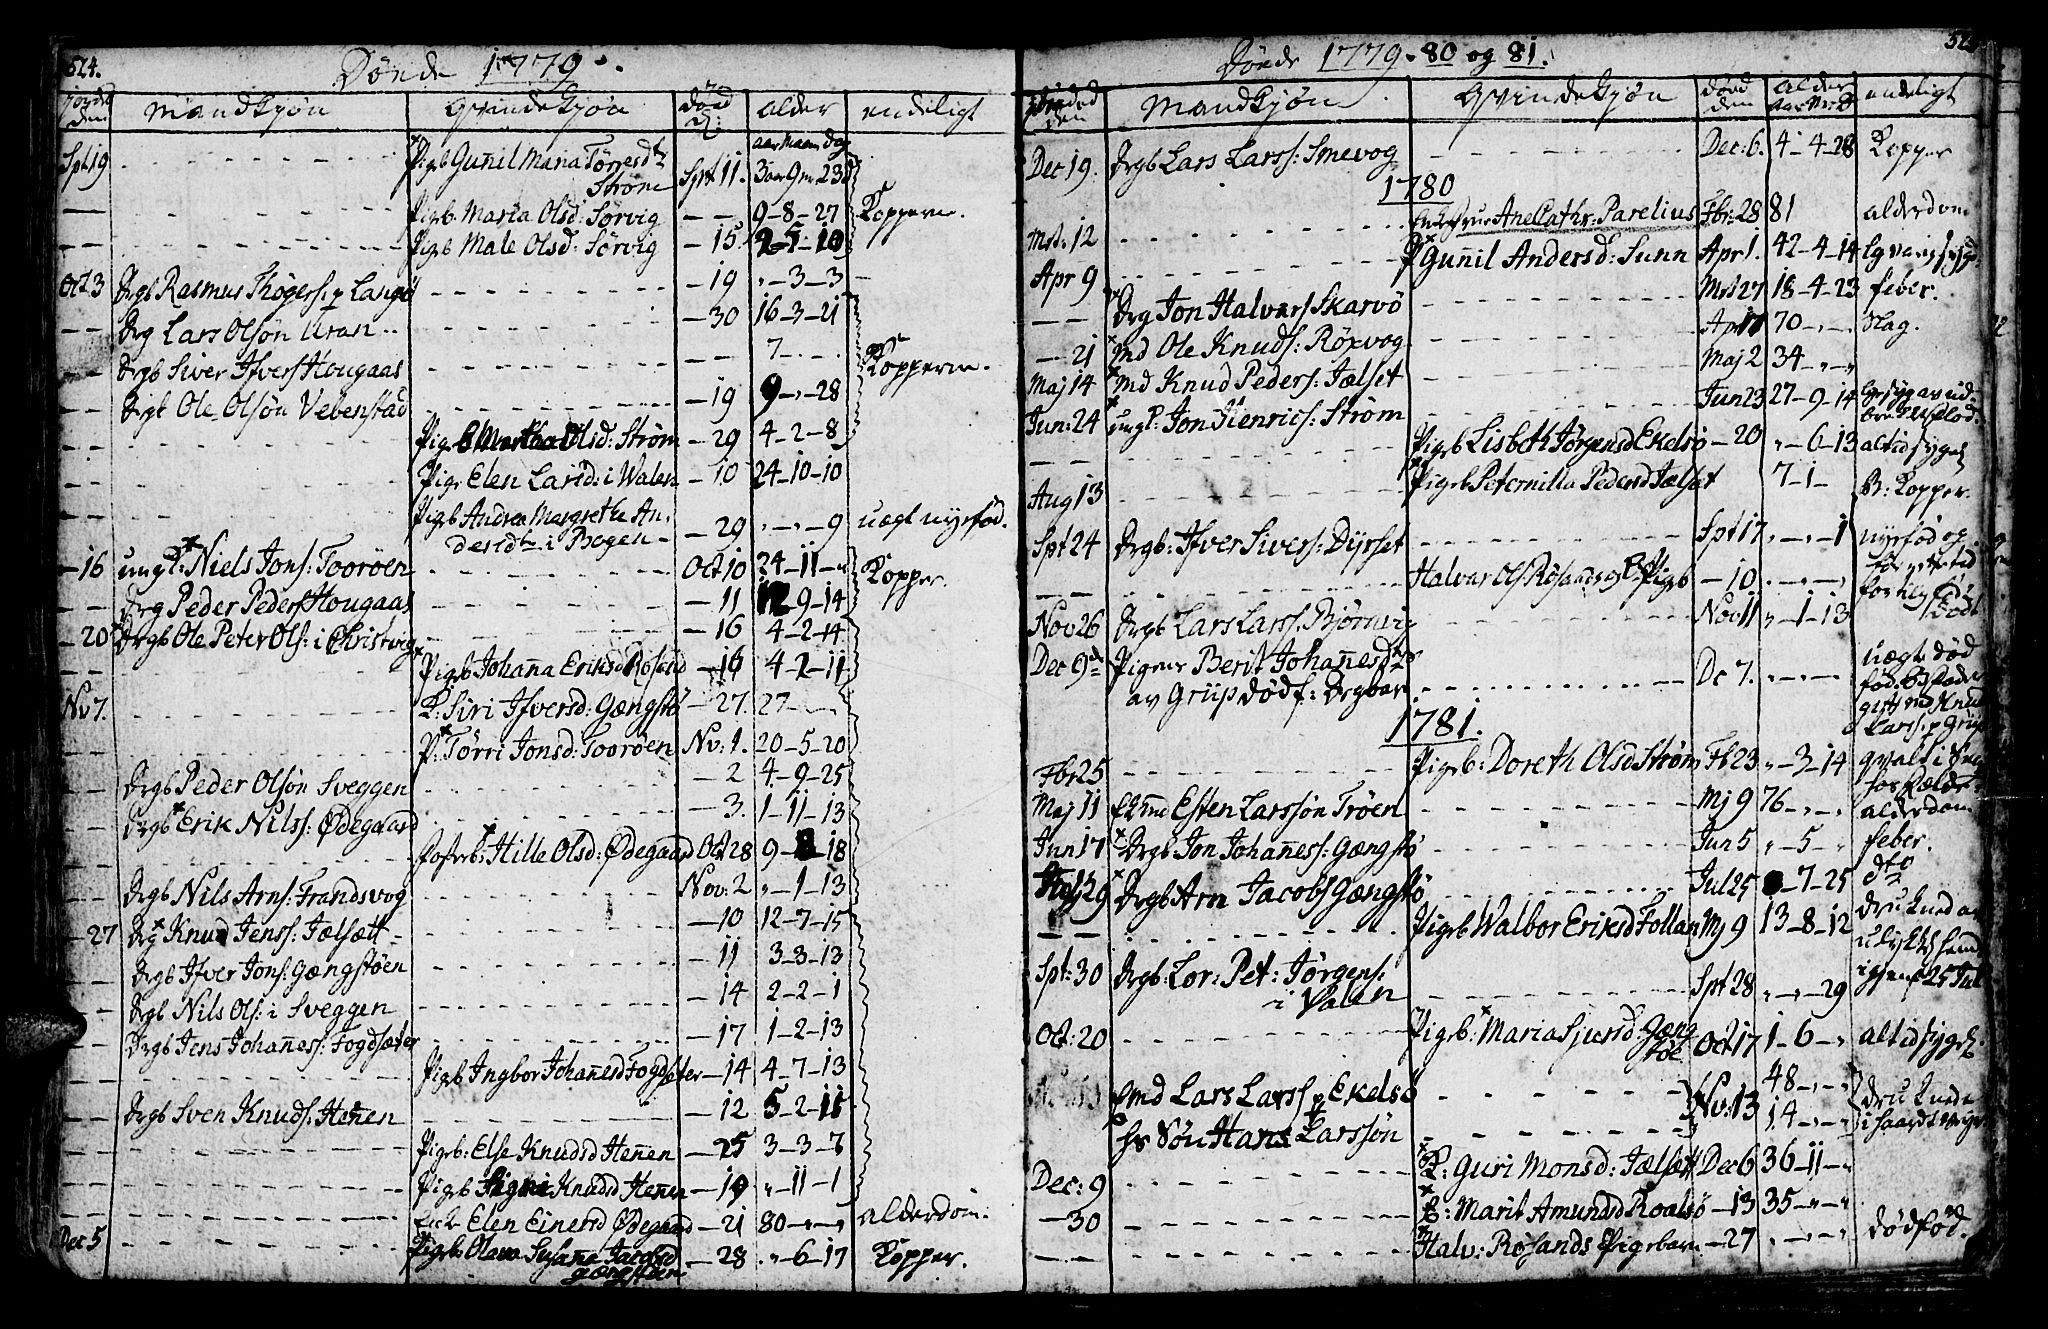 524.
Døde 1779.
jorded den | Mandkjøn | Qvindekjøn | død d: | alder | endeligt
aar Maan Dag
Spt 19 Pigb Gunil Maria Tørresdt Strøm Spt 11. 3 aar 9 m 23 d
— Pigb. Maria Olsd: Sørvig — — 9-8-27 Kopperne.
Pigb Male Olsd: Sørvig — 15 2-7-10
Oct 3 Drgb Rasmus Thøgers: p Langø — 19 „-3-3
— Drg Lars Olsøn Uran — 30 16-3-21
— Drgb Siver Ifvers Hougaas — — 7-.- Kopperne.
— — Drgb Ole Olsøn Vebenstad — 19 9-„-28
— Pigb Olsd: Strøm — 29 4-2-8
— Pige Elen Larsd: i Walen — 10 24-10-10
— Pigb Andrea Margrethe An-
dersdt i Bogen — 29 „-„-9 uægt nyefød.
— 16 ungk: Niels Jons: Toorøen Oct 10 24-11-„ Kopper.
— Drg Peder Peders Hougaas — 11 12-9-14
— 20 Drgb Ole Peter Ols: i Christvig — 16 4-2-14
— Pigb Johanna Eriksd Røsand — 16 4-2-11
Nv 7. K: Siri Ifversd: Gængstø — 27. 27 —
P: Tørri Jonsd: Toorøen Nv: 1. 20-5-20
Drgb Peder Olsøn Sveggen — 2 4-9-25
Drgb Erik Nilss: Ødegaard — 3. 1-11-13
Fosterb: Hille Olsd: Ødegaard Oct 28 9-8-18
— Drgb Nils Arns: Frandsvog Nov: 2 „-1-13
— 27 Drg Knud Jenss: Jælsætt — 10 12-7-15
— Drgb Ifver Jons: Gængstøen — 11 3-3-13
— Drgb Nils Ols: i Sveggen — 14 2-2-1
— Drgb Jens Johaness: Fogdsæter — 17 1-2-13
— Pigb Ingbor Johanesd Fogdsæter — 14 4-7-13
— Drgb Sven Knuds: Henen — 12 5-2-11
— Pigb: Else Knudsd Henen — 25 3-3-7
— Pigb Signi Knudsd Henen — 19 „-11-1
— Enke Elen Einersd Ødegaard — 21 80-„-„ alderdom.
Dec 5 Pigb Olava Susana Jacobsd
Gængstøen — 28 „-6-17 Kopper.
Døde 1779-80 og 81.
Jorded den | Mandkjøn | Qvindekjøn | død den | alder aar M D | endeligt
Dec 19. Drgb Lars Larss: Smevog Dec: 6. 4-4-28 Kopper
1780
Mrt: 12 Ane Cathr: Parelius Fbr: 28 81 alderdom
Apr 9 P Gunil Andersd: Sunn Apr 1. 42-4-14
— — Drg Jon Halvars Skarvø Mrt 27 18-4-23 feber.
— 21 Md Ole Knuds: Røxvog Apr 17 70-„- Slag.
Maj 14 Md Knud Peders: Jælset Maj 2 34 „-„
Jun: 24 ungk: Jon Henrics: Strøm Jun 23 27-9-14
— — Pigeb Lisbeth Jørgensd Ekelsø — 20 „-6-13 altid sygel
Aug 13 Pigeb Peternilla Pedersd Jælset 7-1- B: Kopper.
Spt 24 Drgb: Ifver Sivers: Dyrset Spt 17 „-„-1 nyefød
— — Halvar Ols: Røsands Pigb — 10 .-„-„ for tidlig
Nov 26 Drgb Lars Larss. Bjørnvig Nov: 11 „-1-13
Dec 9 Pigens Berit Johanesdts
av Grip dødf: Drgbarn Dc 7. „-„-„ uægte død
fød. 
gift med Knud
Larss. p Grip
1781.
Fbr 25 Pigeb: Doreth Olsd Strøm Fb 23 „-3-14 qvalt i
Maj 11 Esten Larssøn Trøen Mj 9 76-„-„ alderdom
Jun 17 Drgb Jon Johaness: Gængstø Jun 5 „-5-„ feber.
Jul 29 Drgb Arn Jacobs Gængstø Jul 25 -7-25 dto
— — Pigeb Walbor Eriksd Follan Mj 9 13-8-12 drukned
igjenf 25 Jul
Spt: 30 Drgb: Lor: Pet: Jørgens:
i Valen Spt 28 „-„-29
Oct: 20 Pigeb: Maria Sjursd Gæng
støe Oct 17 1-6-„ altid sygel.
Emd Lars Larss p Ekelsø 48-„-„ druknede
hs Søn Hans Larssøn Nv: 13 14-„-„ i haardt veyr
Dec: 9 K: Guri Monsd: Jælset Dec 6 36-11-„
— 30 K: Marit Amundsd Roalsø — 13 35-„-„
— — Halv: Røsands Pigebarn — 27 „-„-„ dødfød.